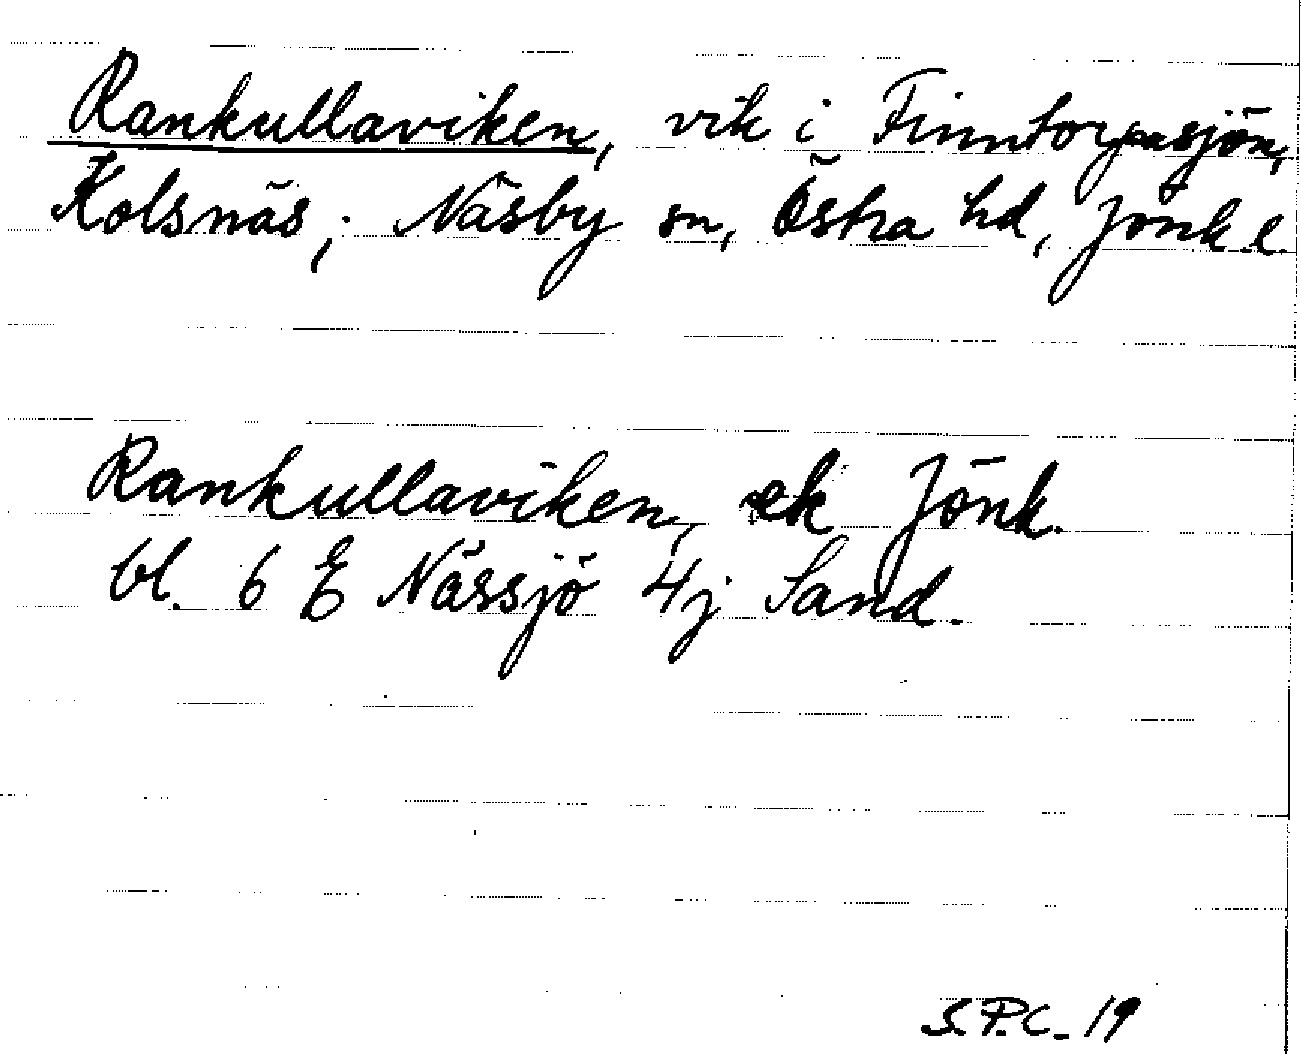 Rankullaviken, vik i Finntorpasjön,
Kolsnäs; Näsby sn, Östra hd, Jönk l.
Rankullaviken, ek Jönk.
bl. 6 E Nässjö 4j Sand.
S.P.C. 19